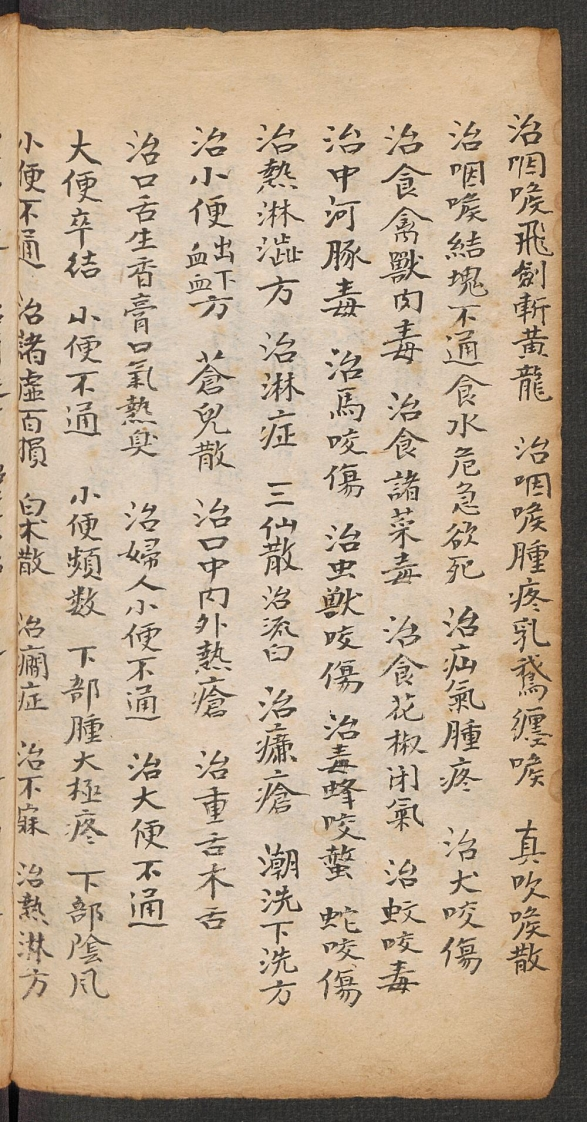 治咽喉飛劍斬黃龍 治咽喉腫疼乳鵞纏喉 真吹喉散
治咽喉結塊不通食水危急欲死 治疝氣腫疼 治犬咬傷
治食禽獸肉毒 治食諸菜毒 治食花椒闭氣 治蚊咬毒
治中河豚毒 治馬咬傷 治虫獸咬傷 治毒蜂咬螫 蛇咬傷
治熱淋澁方 治淋症 三仙散治流白 治癢瘡 潮洗下洗方
治小便出血下血方 蒼兒散 治口中内外熱瘡 治重舌木舌
治口舌生香膏口氣熱臭 治婦人小便不通 治大便不通
大便卒结 小便不通 小便頻数 下部腫大極疼 下部陰风
小便不通 治諸虛百損 白术散 治癎症 治不寐 治熱淋方